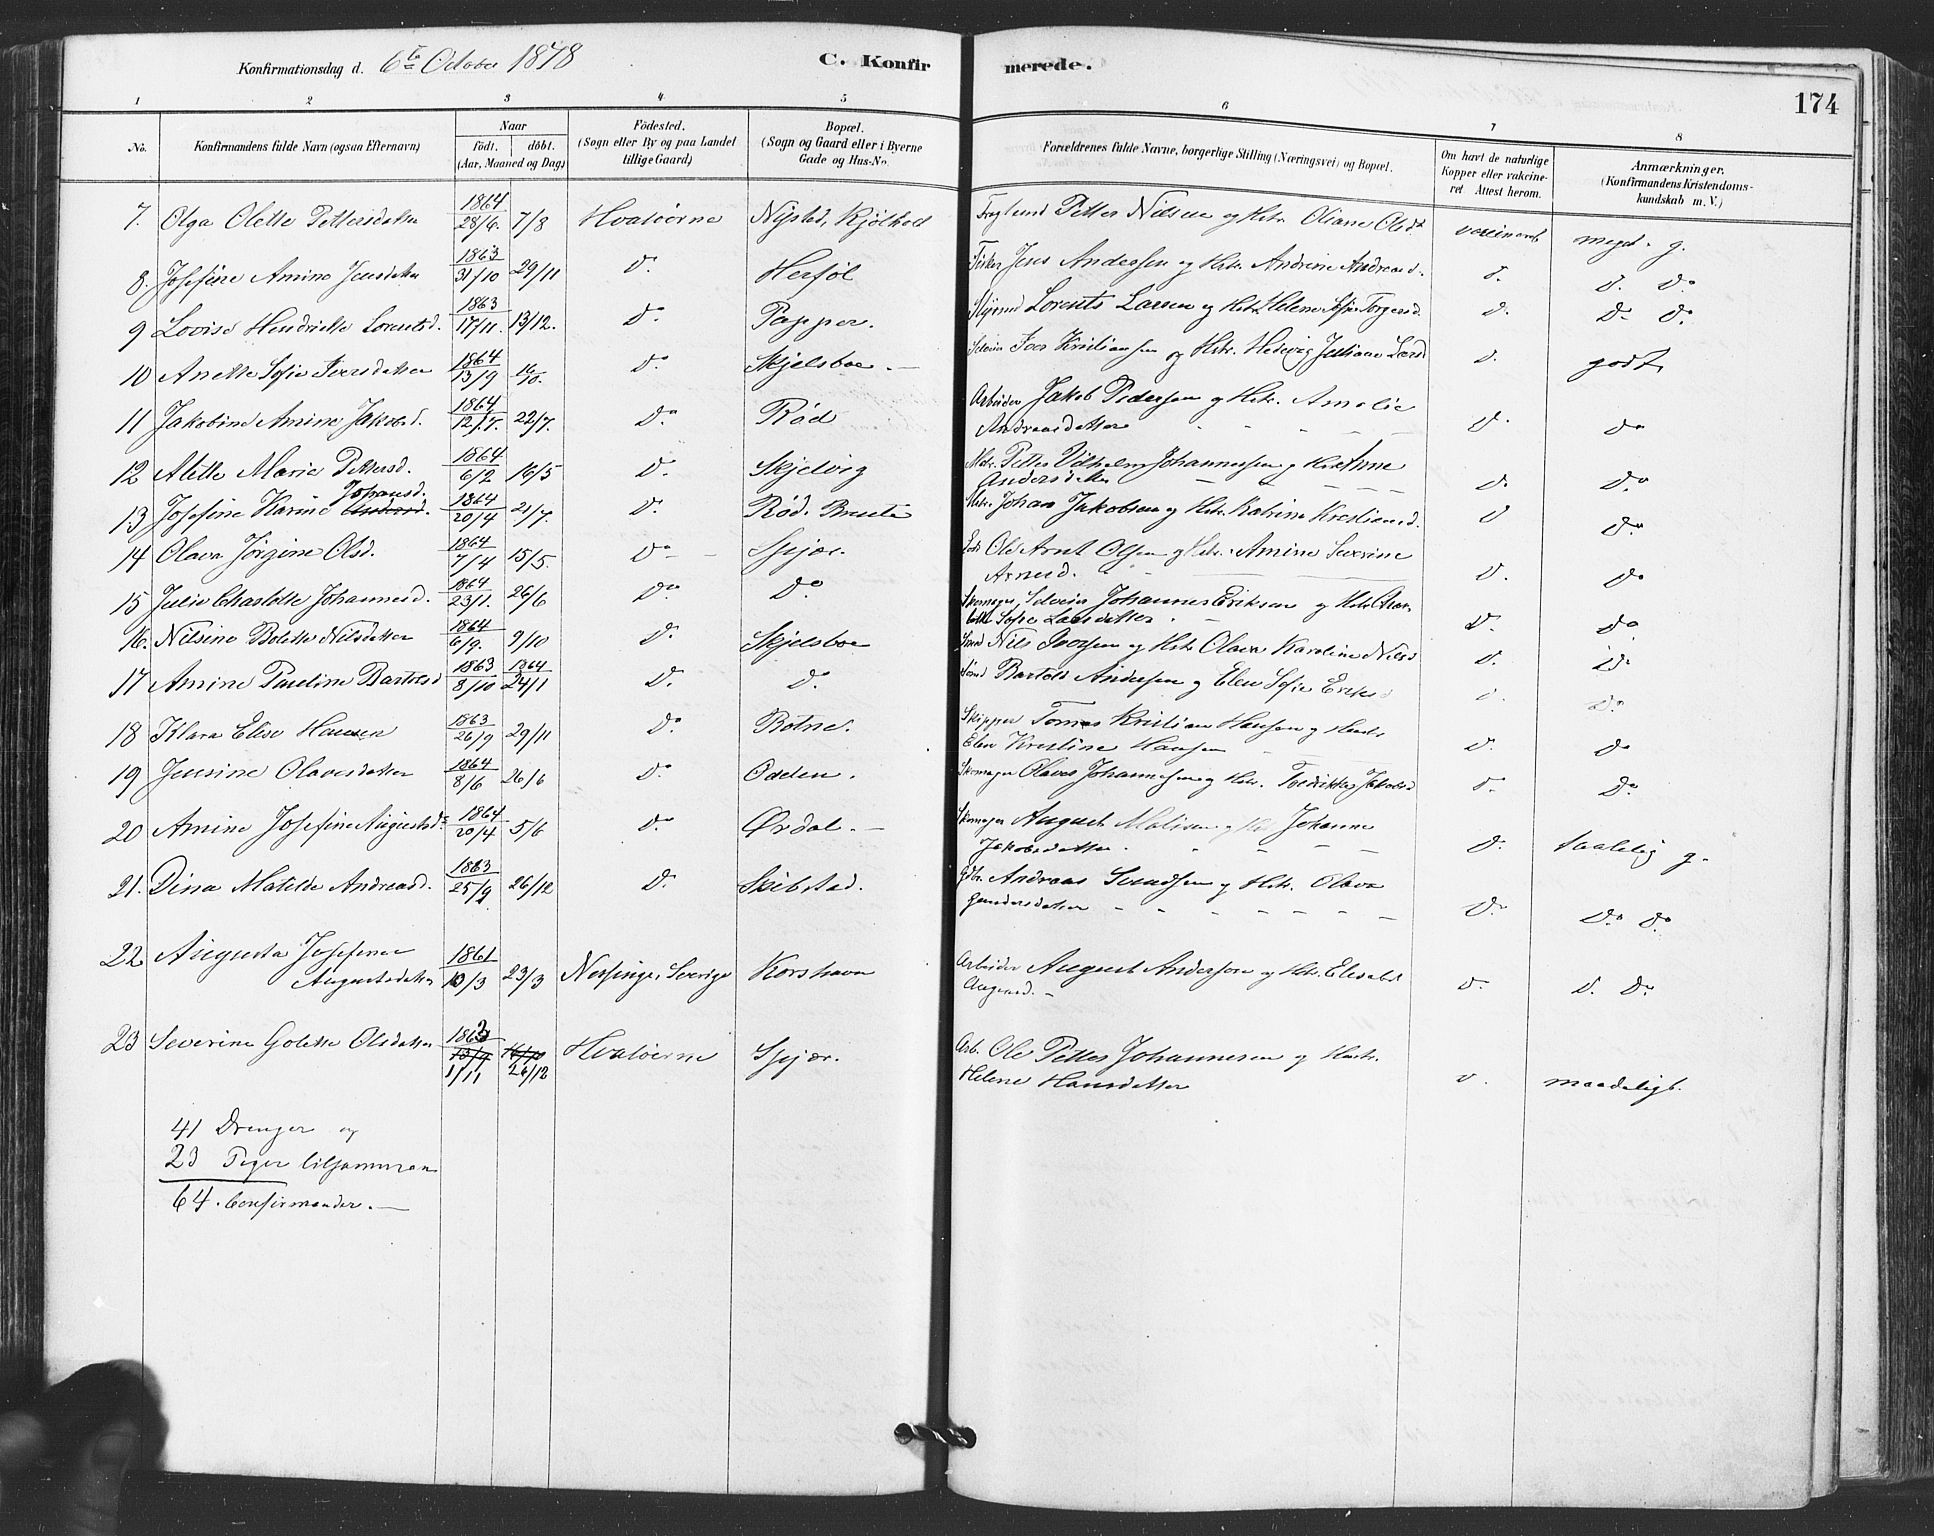 Konfirmationsdag d. 6te October 1878 C. Konfirmerede.
174
1 2 3 4 5 6 7 8
No. Konfirmandens fulde Navn (ogsaa Efternavn) Naar födt. döbt. (Aar, Maaned og Dag) Födested. (Sogn eller By og paa Landet tillige Gaard) Bopæl. (Sogn og Gaard eller i Byerne Gade og Hus-No. Forældrenes fulde Navne, borgerlige Stilling (Næringsvei) og Bopæl. Om havt de naturlige Kopper eller vakcineret. Attest herom. Anmærkninger. (Konfirmandens Kristendomskundskab m. V.)
7. Olga Olette Pettersdatter 1864 28/6. 7/8 Hvaløerne Nystad, Kjölholt Petter Nilsen og Hstr. Oliane Olsd. vaccineret meget g.
8. Josefine Amine Jensdatter 1863 31/10 29/11 do. Herföl Fisker Jens Andersen og Hstr. Andrine Andreasd. do. do. do.
9 Lovise Hendrikke Lorentsd. 1863 17/11. 13/12. do. Papper. Lorents Larsen og Hstr. Helene Sofie Torgersd. do. do. do.
10 Anette Sofie Iversdatter 1864 13/9 16/10. do. Skjelsboe. Selveier Iver Kristiansen og Hstr. Hedevig Juliane Larsd do. godt
11 Jakobine Amine Jakobsd. 1864 12/7. 22/7. do. Röd Arbeider Jakob Pedersen og Hstr. Amalie
Andreasdatter do. do.
12 Alette Marie Pettersd. 1864 6/2 16/5 do. Skjelvig Petter Vilhelm Johannessen og Hstr Anne
Andersdatter do. do.
13 Josefine Karine Johansd. 1864 20/4 21/7. do. Röd. Brente Johan Jakobsen og Hstr. Katrine Kristiansd. do. do.
14 Olava Jörgine Olsd. 1864 7/4 15/5. do. Spjær. Ole Arnt Olsen og Hstr. Amine Severine
Arnesd. do. do.
15 Julie Charlotte Johannesd. 1864 23/1. 26/6 do. do. Skomager, Selveier Johannes Eriksen og Hstr. Charlotte
Sofie Larsdatter do. do.
16. Nilsine Bolette Nilsdatter 1864 6/9. 9/10 do. Skjelsboe Nils Iversen og Hstr Olava Karoline Nilsd do. do.
17 Amine Pauline Bartolsd 1863 8/10 1864 24/1 do. do. Bartold Andersen og Elen Sofie Eriks do. do.
18 Klara Elise Hansen 1863 26/9 29/11 do. Botne. Skipper Tomas Kristian Hansen og Hustr
Elen Kristine Hansen do. do
19 Jensine Olavesdatter 1864 8/6 26/6 do. Odden. Skomager Olaves Johannesen og Hstr. Fredrikke Jakobsd do. do.
20 Amine Josefine Augustsd. 1864 20/4 5/6 do. Ørdal. Skomager August Malisen og Hst Johanne
Jakobsdatter. do. taalelig g.
21. Dina Matilde Andreasd. 1863 25/9 26/12 do. Skibstad. Gdbr. Andreas Svendsen og Hstr. Olava
Gundersdatter do. do. do.
22 Augusta Josefine
Augustsdatter 1861 10/3 23/3 Nesinge, Sverige Korshavn Arbeider August Anderson og Hstr. Elisabet
Aagaard. do. do. do.
23 Severine Golette Olsdatter 1862 13/9 1/11 16/10 26/12 Hvaløerne Spjær. Arb. Ole Petter Johannesen og Hustr.
Helene Hansdatter do. maadeligt.
41 Drenger og
23 Piger tilsammen
64. Confirmander.